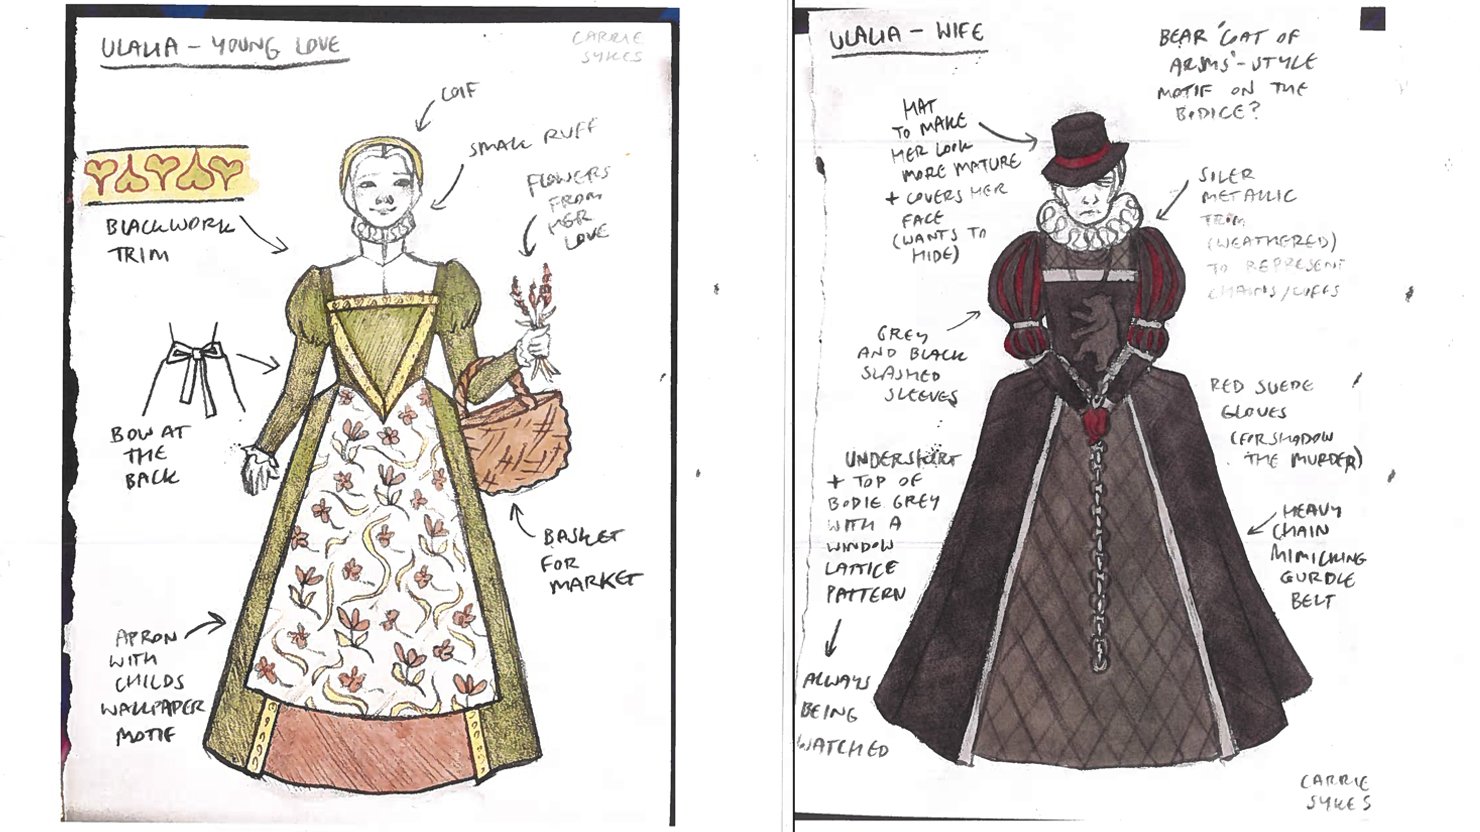 ULALIA - YOUNG LOVE
CARRIE
SYKES
COIF
SMALL RUFF
FLOWERS
FROM
HER
LOVE
BLACKWORK
TRIM
BOW AT
THE
BACK
BASKET
FOR
MARKET
APRON
WITH
CHILDS
WALLPAPER
MOTIF
ULALIA - WIFE
BEAR 'COAT OF
ARMS'-STYLE
MOTIF ON THE
BODICE?
HAT
TO MAKE
HER LOOK
MORE MATURE
+ COVERS HER
FACE
(WANTS TO
HIDE)
SILER
METALLIC
TRIM
(WEATHERED)
TO REPRESENT
CHAINS/CUFFS
GREY
AND BLACK
SLASHED
SLEEVES
RED SUEDE
GLOVES
(FORSHADOW
THE MURDER)
UNDERSKIRT
+ TOP OF
BODIE GREY
WITH A
WINDOW
LATTICE
PATTERN
HEAVY
CHAIN
MIMICKING
GURDLE
BELT
ALWAYS
BEING
WATCHED
CARRIE
SYKES